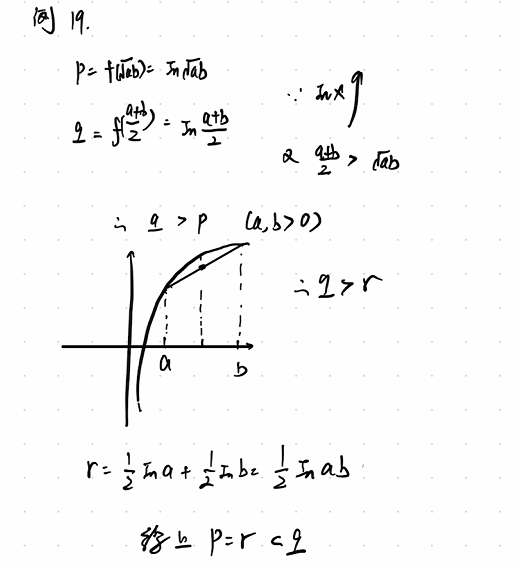 例 19.
p = f(√ab) = ln√ab
q = f(a+b/2) = ln a+b/2
∵ lnx ↑
又 a+b/2 > √ab
∴ q > p (a,b>0)
∴ q > r
a b
r = 1/2 lna + 1/2 lnb = 1/2 ln ab
综上 p=r<q